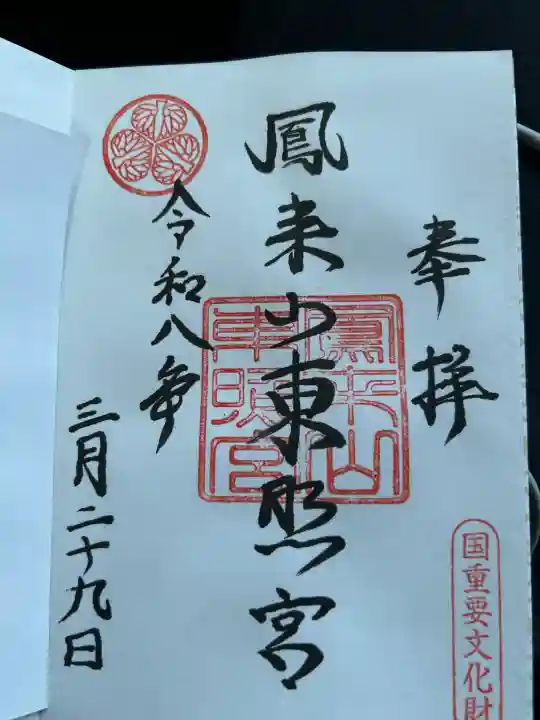 奉拝
国重要文化財
鳳来山東照宮
鳳来山
東照宮
令和八年
三月二十九日